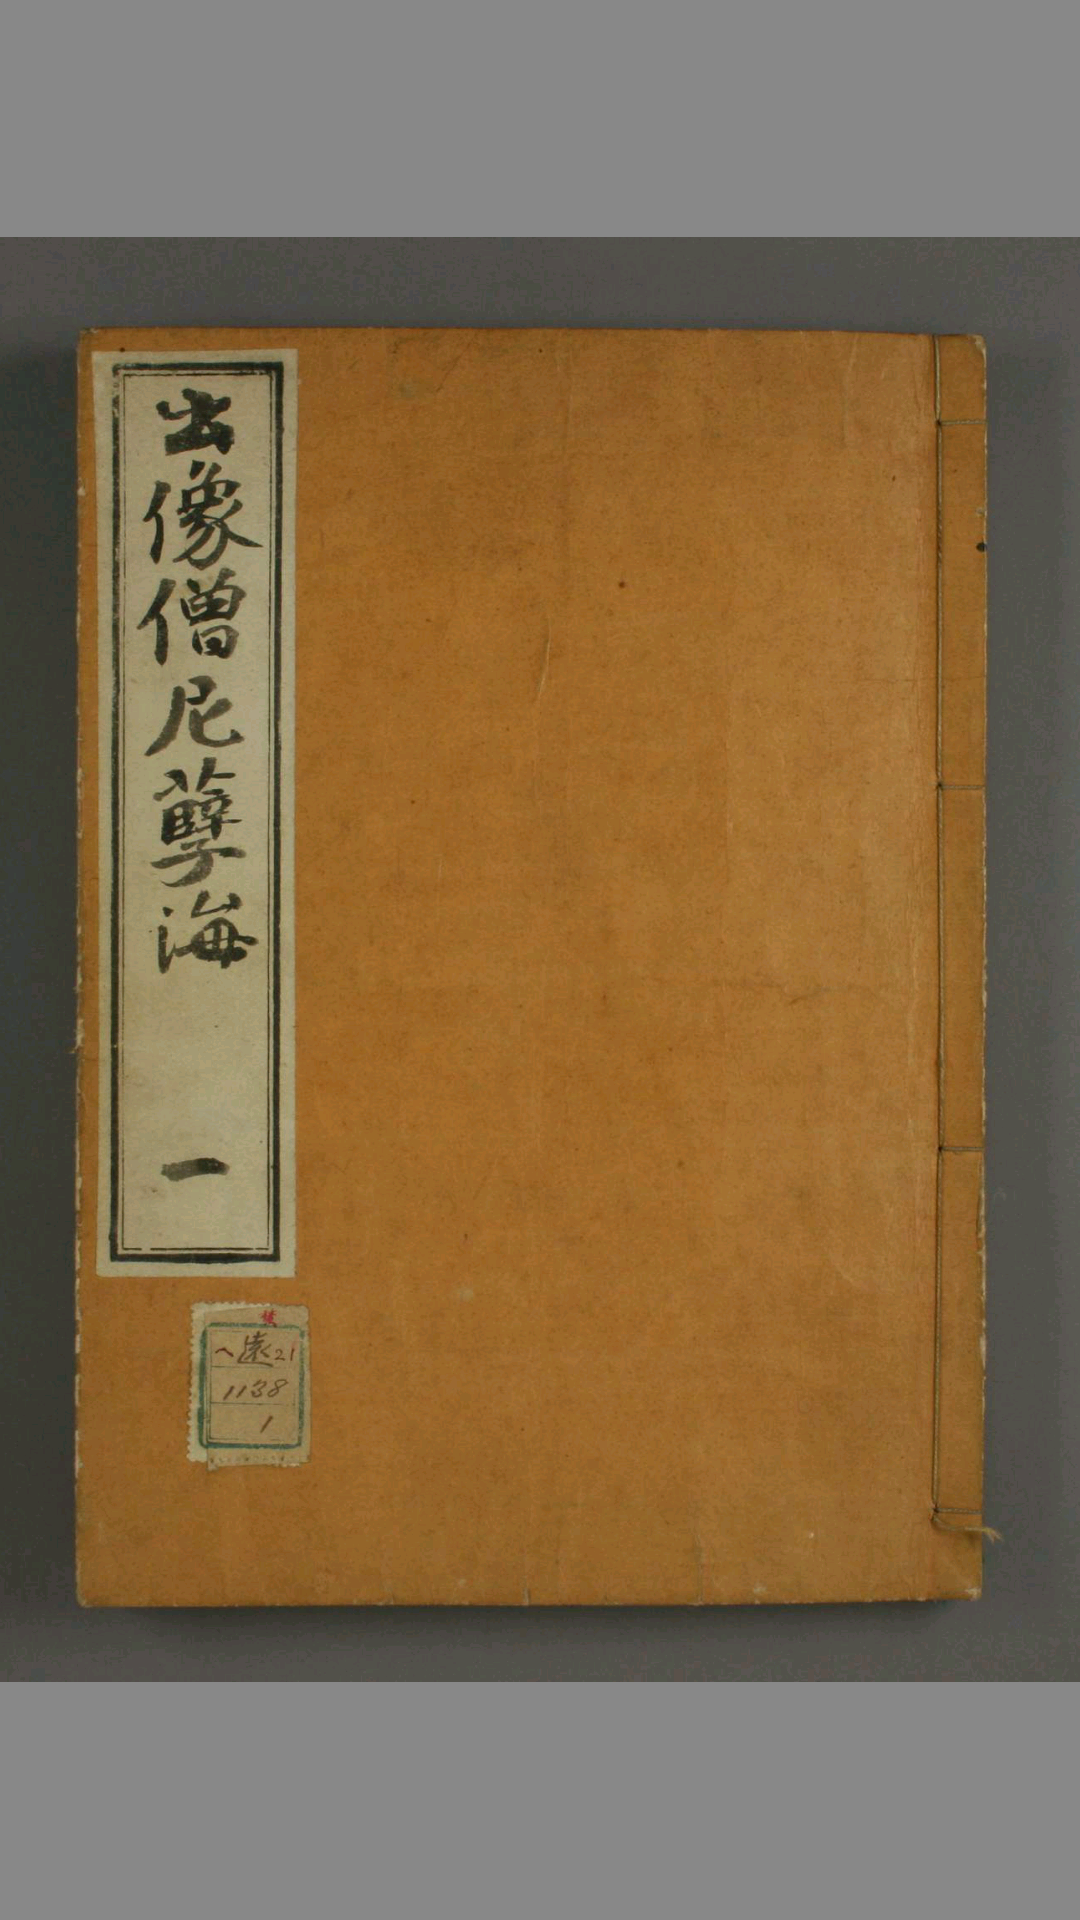 出像僧尼孽海 一
ヘ遠21
1138
1